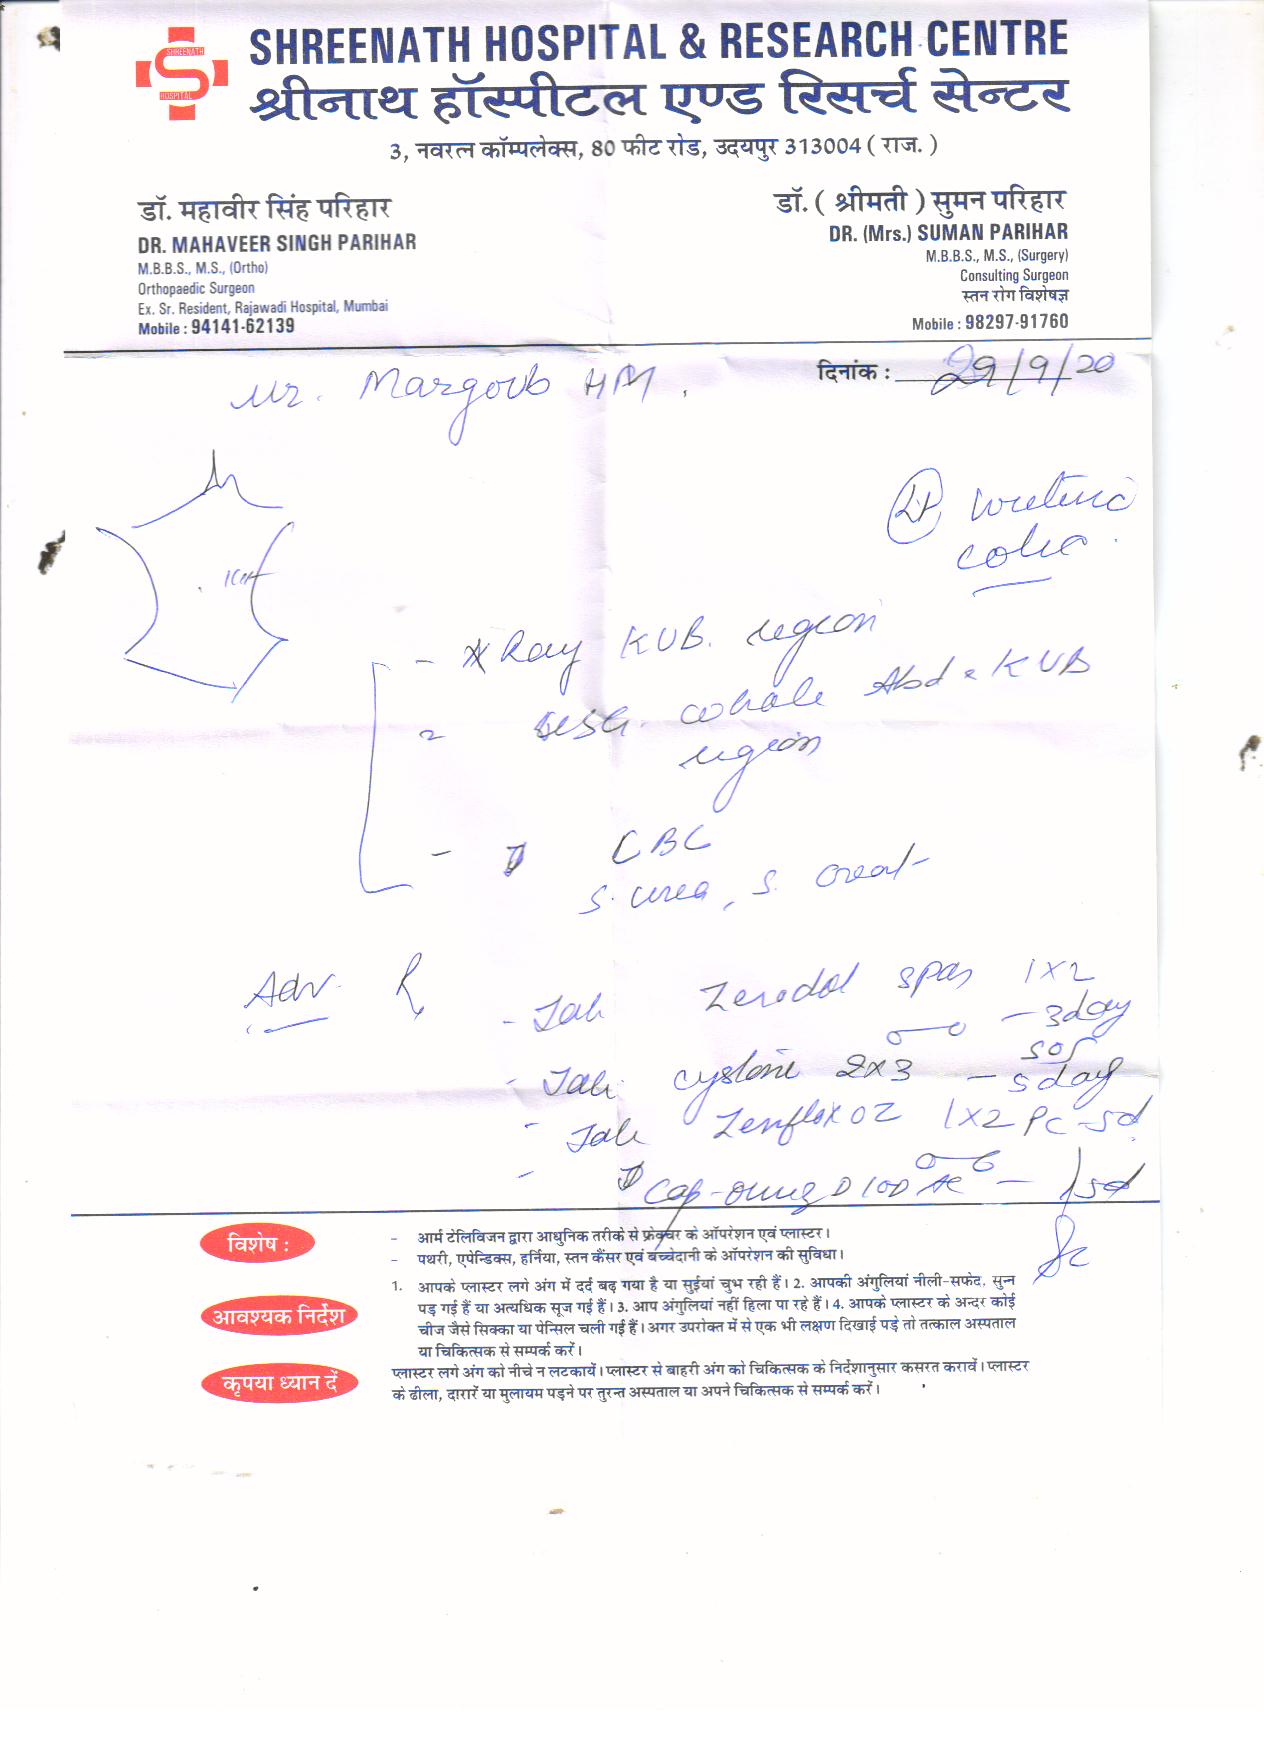 SHREENATH HOSPITAL
SHREENATH HOSPITAL & RESEARCH CENTRE
श्रीनाथ हॉस्पीटल एण्ड रिसर्च सेन्टर
3, नवरत्न कॉम्पलेक्स, 80 फीट रोड, उदयपुर 313004 ( राज. )
डॉ. महावीर सिंह परिहार
DR. MAHAVEER SINGH PARIHAR
M.B.B.S., M.S., (Ortho)
Orthopaedic Surgeon
Ex. Sr. Resident, Rajawadi Hospital, Mumbai
Mobile : 94141-62139
डॉ. ( श्रीमती ) सुमन परिहार
DR. (Mrs.) SUMAN PARIHAR
M.B.B.S., M.S., (Surgery)
Consulting Surgeon
स्तन रोग विशेषज्ञ
Mobile : 98297-91760
दिनांक : 29/9/20
Mr. Margoob HM.
ureteric
colic.
- X Ray KUB. region
- USG. whole Abd & KUB
region
- CBC
S. urea, S. creat-
Adv. R
- Tab Zerodol spas 1x2
- 3day
SOS
- Tab. cystone 2x3 - 5day
- Tab Zenflox OZ 1x2 PC - 5d
- Cap - D 100 - 5d
विशेष :
- आर्म टेलिविजन द्वारा आधुनिक तरीके से फ्रेक्चर के ऑपरेशन एवं प्लास्टर।
- पथरी, एपेन्डिक्स, हर्निया, स्तन कैंसर एवं बच्चेदानी के ऑपरेशन की सुविधा।
आवश्यक निर्देश
1. आपके प्लास्टर लगे अंग में दर्द बढ़ गया है या सुईयां चुभ रही हैं। 2. आपकी अंगुलियां नीली-सफेद, सुन्न
पड़ गई हैं या अत्यधिक सूज गई हैं। 3. आप अंगुलियां नहीं हिला पा रहे हैं। 4. आपके प्लास्टर के अन्दर कोई
चीज जैसे सिक्का या पेन्सिल चली गई हैं। अगर उपरोक्त में से एक भी लक्षण दिखाई पड़े तो तत्काल अस्पताल
या चिकित्सक से सम्पर्क करें।
कृपया ध्यान दें
प्लास्टर लगे अंग को नीचे न लटकायें। प्लास्टर से बाहरी अंग को चिकित्सक के निर्देशानुसार कसरत करावें। प्लास्टर
के ढीला, दारारें या मुलायम पड़ने पर तुरन्त अस्पताल या अपने चिकित्सक से सम्पर्क करें।